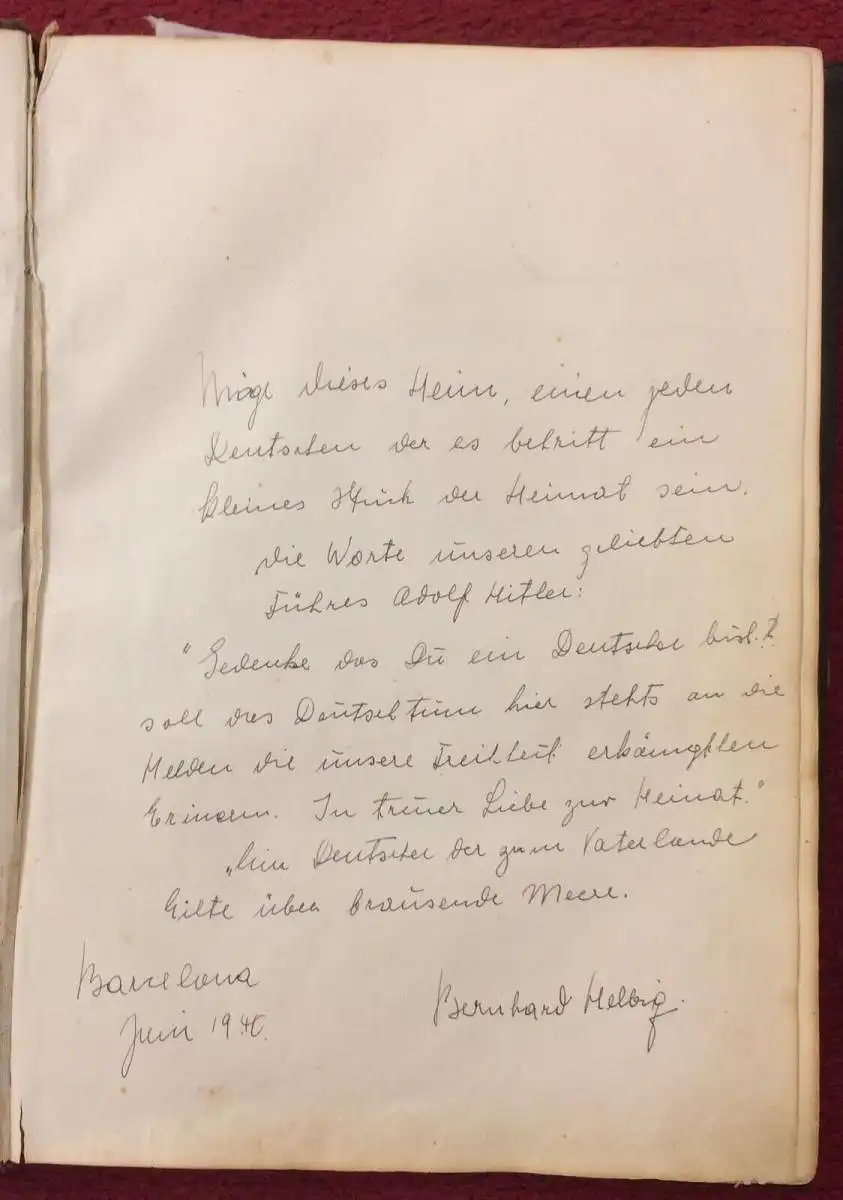 Möge dieses Heim, einen jeden
Deutschen der es betritt ein
kleines Stück der Heimat sein.
die Worte unseren geliebten
Führes Adolf Hitler:
"Gedenke das Du ein Deutscher bist."
soll das Deutschtum hier stehts an die
Helden die unsere Freiheit erkämpften
Erinern. In treuer Liebe zur Heimat."
„Ein Deutscher der zum Vaterlande
Eilte über brausende Meere.
Barcelona
Juni 1940.
Bernhard Helbig.